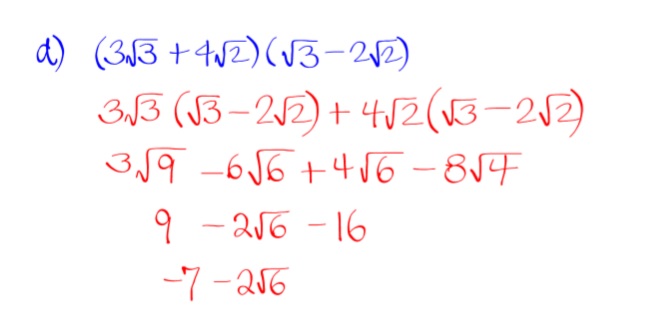 d) (3√3 + 4√2)(√3 − 2√2)
3√3 (√3 − 2√2) + 4√2(√3 − 2√2)
3√9 − 6√6 + 4√6 − 8√4
9 − 2√6 − 16
−7 − 2√6